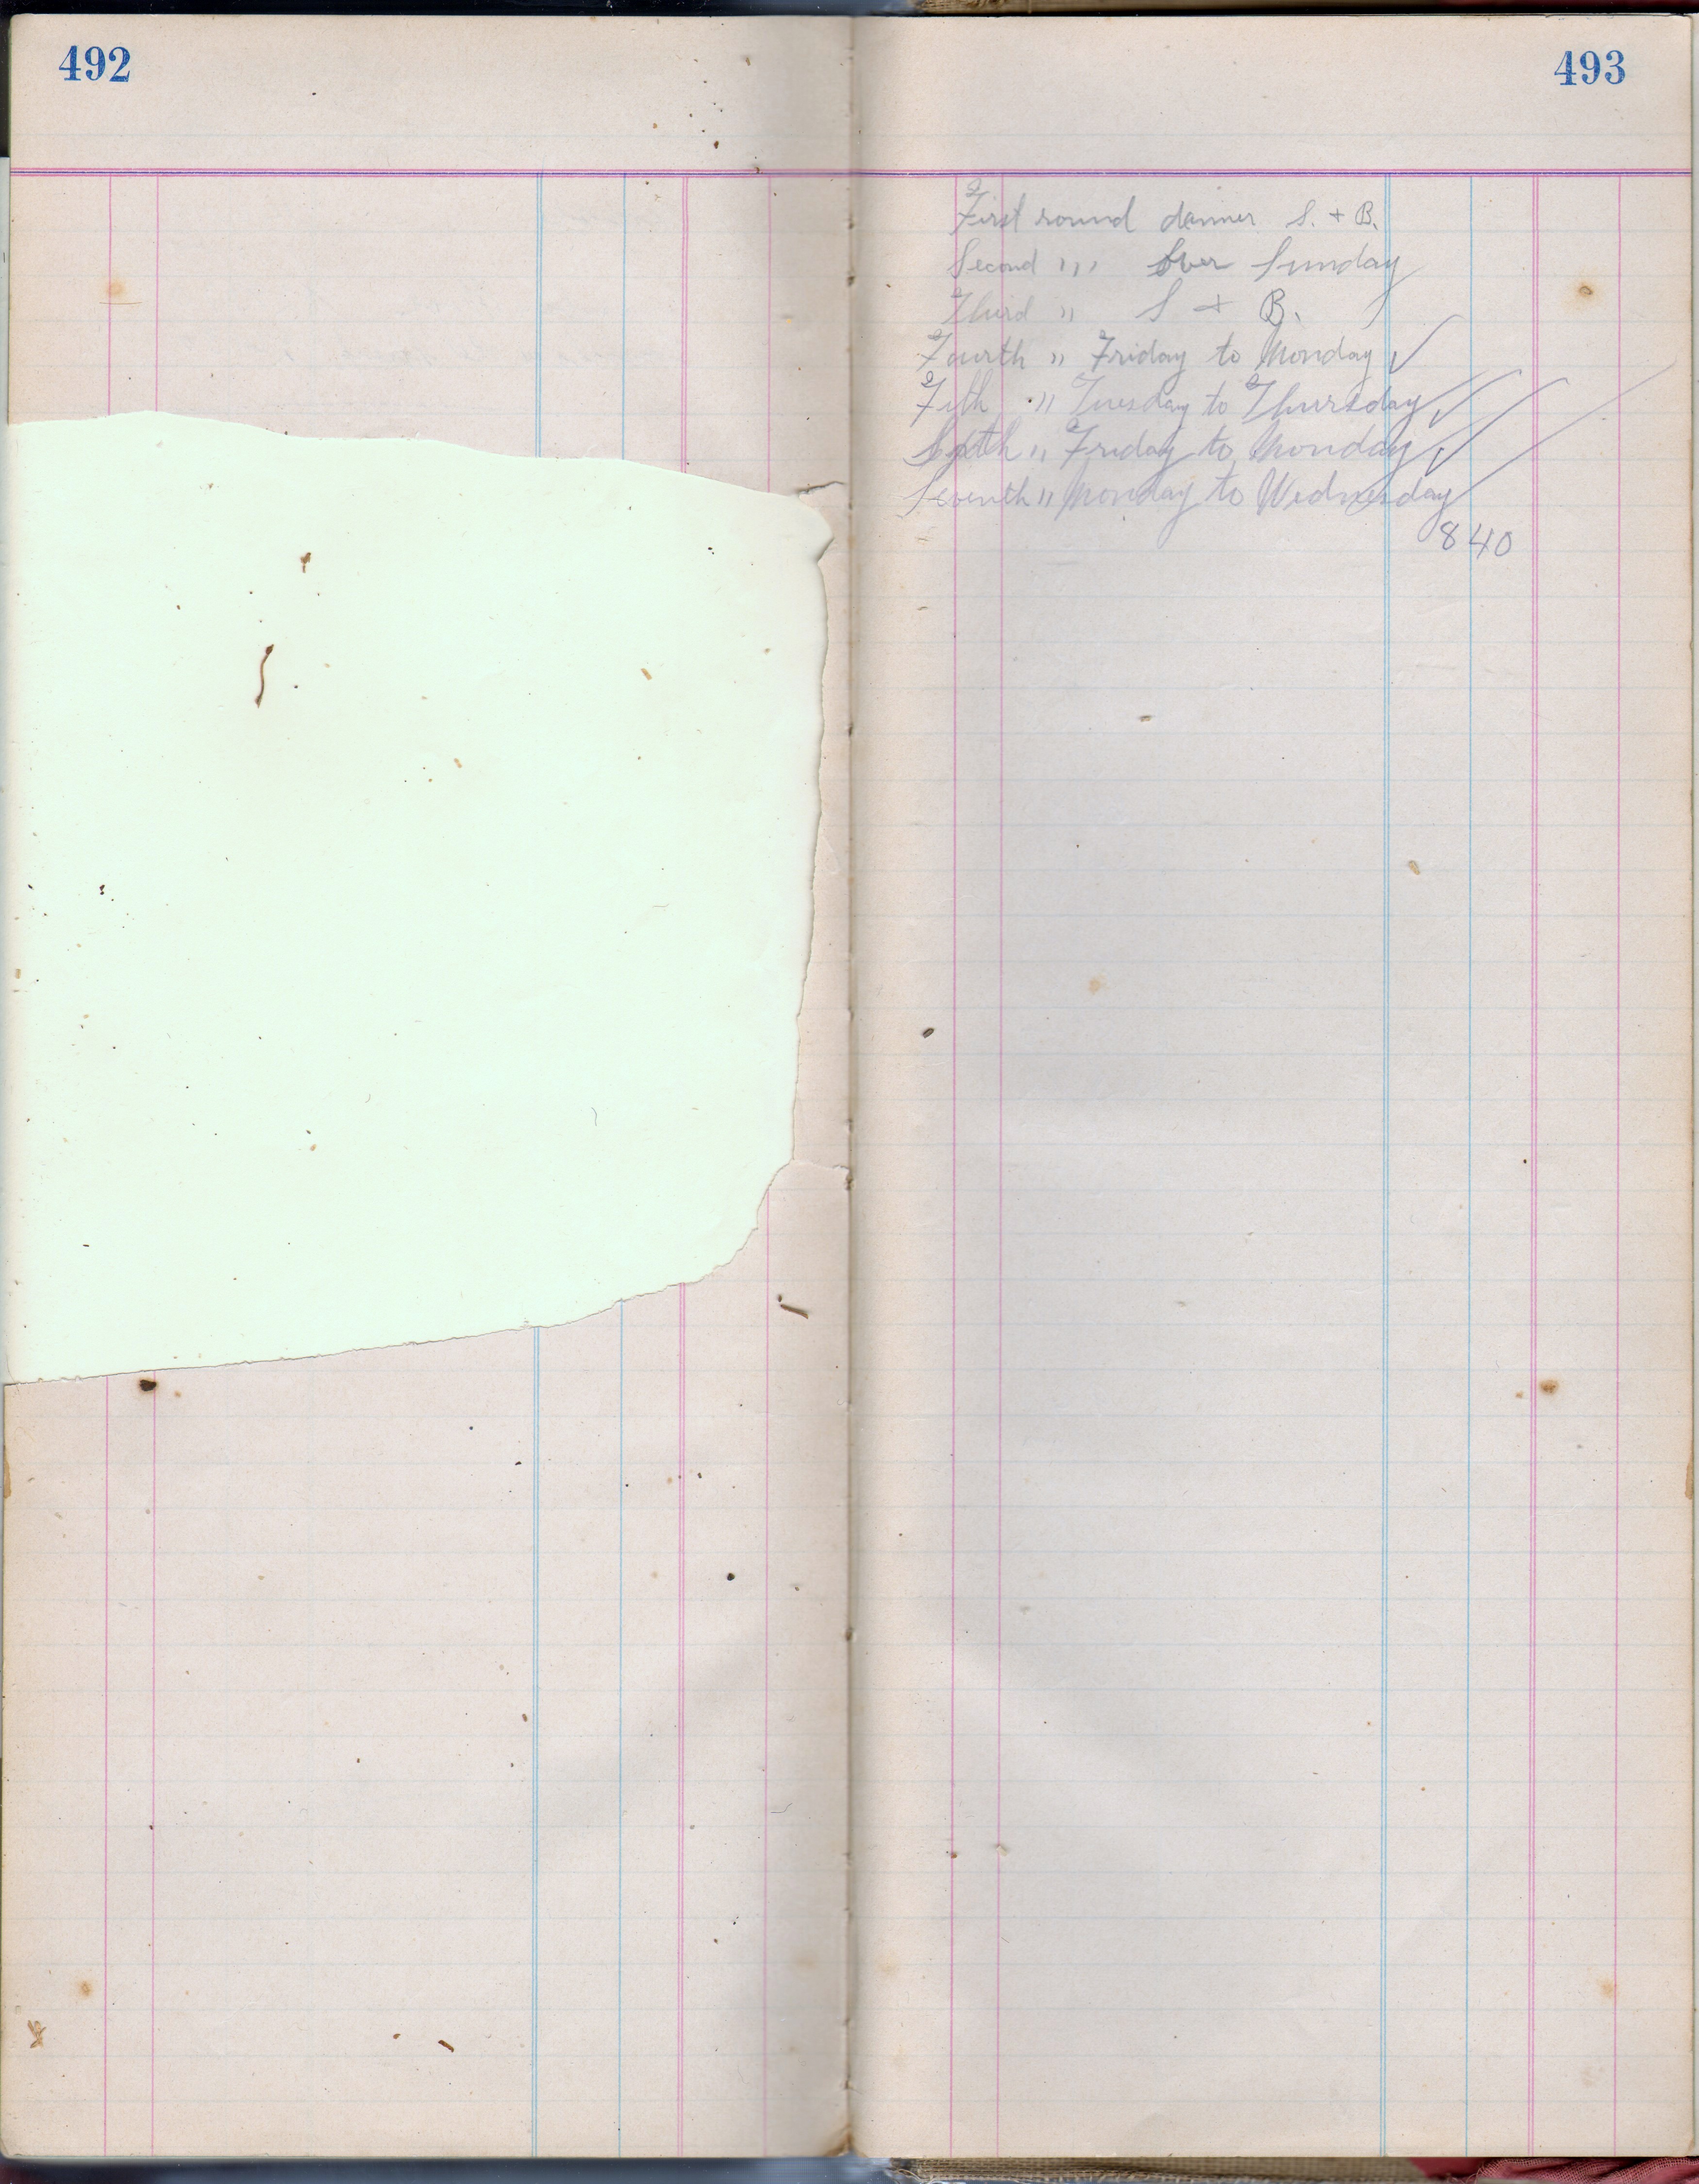 492
493
First round dinner S. + B.
Second ,,, Over Sunday
Third " S + B.
Fourth " Friday to Monday ✓
Fith " Tuesday to Thursday ✓
Sixth " Friday to Monday ✓
Seventh " Monday to Wednesday ✓
840